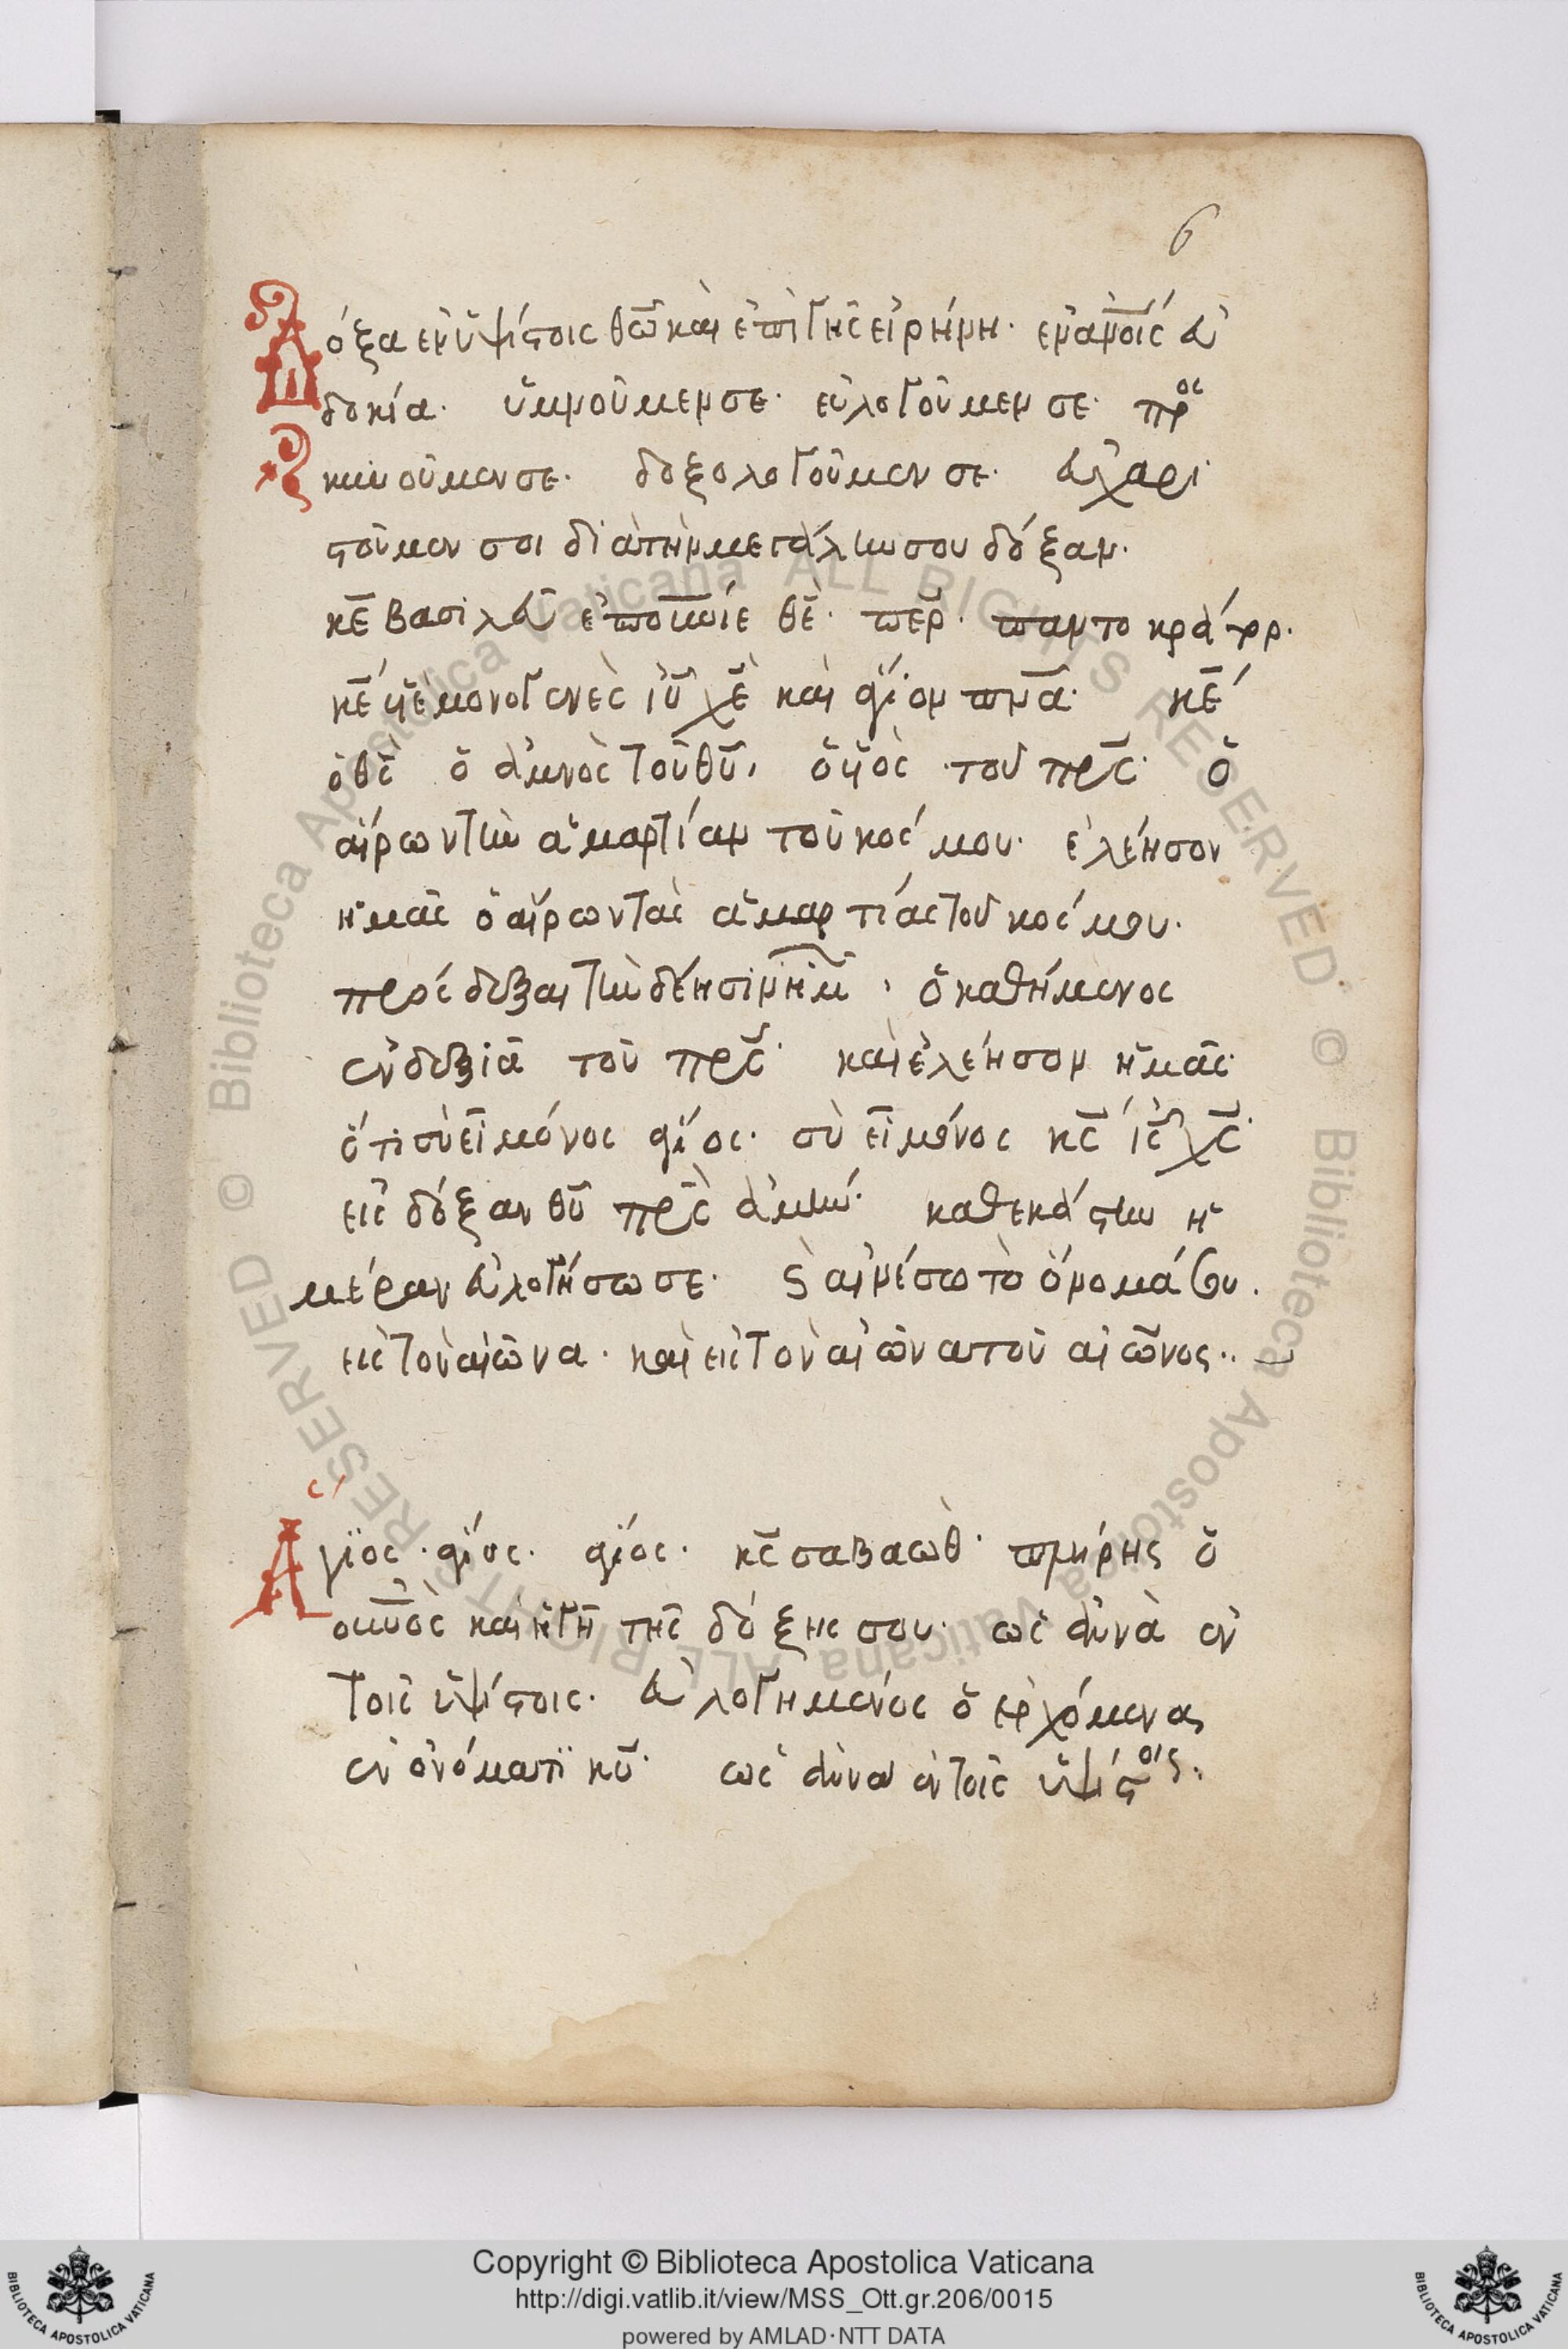 6
Δόξα ἐν ὑψίστοις θω καὶ ἐπὶ γῆς εἰρήνη· ἐν ἀνοις εὐ
δοκία· ὑμνοῦμεν σε· εὐλογοῦμεν σε· προς
κυνοῦμεν σε· δοξολογοῦμεν σε· εὐχαρι
στοῦμεν σοι διὰ τὴν μεγάλην σου δόξαν·
κε βασιλεῦ ἐπουνιε θε· περ· παντοκράτορ·
κε υἱὲ μονογενὲς ιυ χε καὶ ἅγιον πνα· κε
ὁ θς ὁ ἀμνὸς τοῦ θυ, ὁ υἱὸς τοῦ πρς· ὁ
αἴρων τὴν ἁμαρτίαν τοῦ κόσμου· ἐλέησον
ἡμᾶς ὁ αἴρων τὰς ἁμαρτίας τοῦ κόσμου·
πρόσδεξαι τὴν δέησιν ἡμ· ὁ καθήμενος
ἐν δεξιᾶ τοῦ πρς· καὶ ἐλέησον ἡμᾶς·
ὅτι σὺ εἶ μόνος ἅγιος· σὺ εἶ μόνος κς ις χς·
εἰς δόξαν θυ πρς ἀμήν· καθεκάστην ἡ
μέραν εὐλογήσω σε· καὶ αἰνέσω τὸ ὄνομά σου·
εἰς τὸν αἰῶνα· καὶ εἰς τὸν αἰῶνα τοῦ αἰῶνος··
Ἅγιος· ἅγιος· ἅγιος· κς σαβαώθ· πλήρης ὁ
ουνος καὶ ἡ γῆ τῆς δόξης σου· ὡς ἀννὰ ἐν
τοῖς ὑψίστοις· εὐλογημένος ὁ ἐρχόμενος
ἐν ὀνόματι κυ· ὡς ἀννὰ ἐν τοῖς ὑψίστοις·
© Biblioteca Apostolica Vaticana ALL RIGHTS RESERVED
© Biblioteca Apostolica Vaticana ALL RIGHTS RESERVED
Copyright © Biblioteca Apostolica Vaticana
http://digi.vatlib.it/view/MSS_Ott.gr.206/0015
powered by AMLAD·NTT DATA
BIBLIOTECA APOSTOLICA VATICANA
BIBLIOTECA APOSTOLICA VATICANA